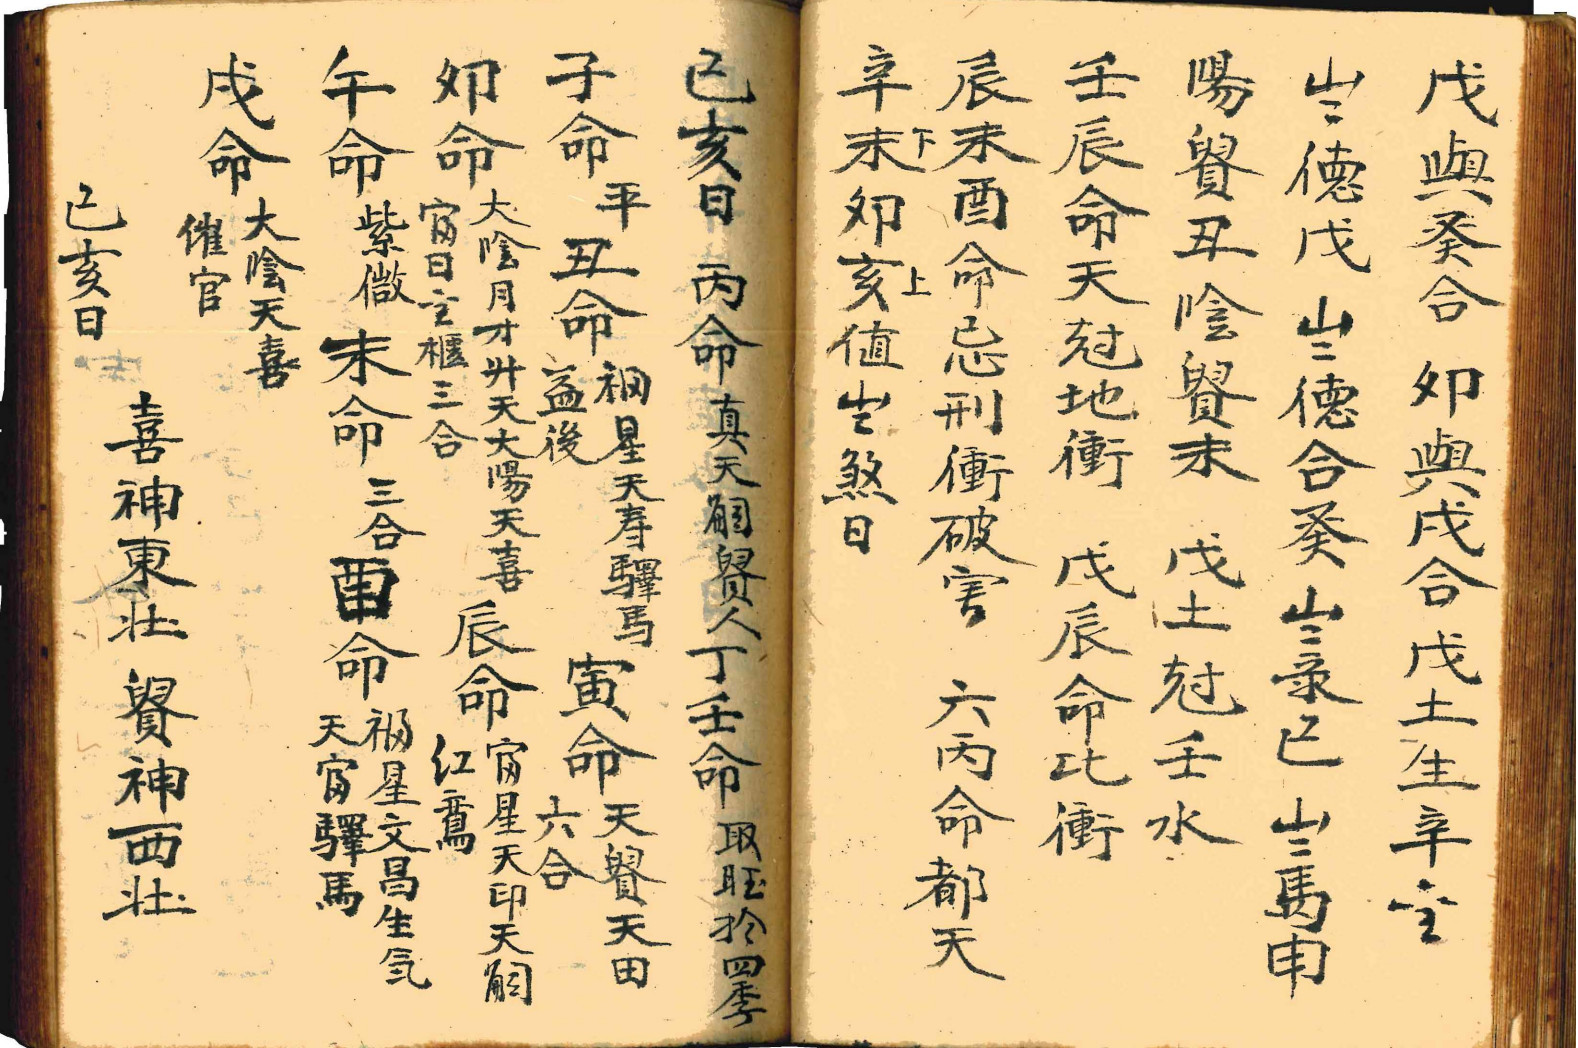 戊與癸合　卯與戌合戊土生辛金
岁德戊　岁德合癸　岁彔巳　岁馬申
陽貴丑陰貴未　戊土尅壬水
壬辰命天尅地衝　戊辰命比衝
辰未酉命忌刑衝破害　六丙命都天
下　上
辛未卯亥值岁煞日
己亥日　丙命　真天嗣貴人　丁壬命　取旺於四季
子命　平　丑命　福星天寿驛馬　益後　寅命　天貴天田　六合
卯命　大陰月才升天大陽天喜　富日金樞三合　辰命　富星天印天嗣　紅鸞
午命　紫微　未命　三合　酉命　福星文昌生気　天富驛馬
戌命　大陰天喜　催官
己亥日　喜神東北　貴神西北